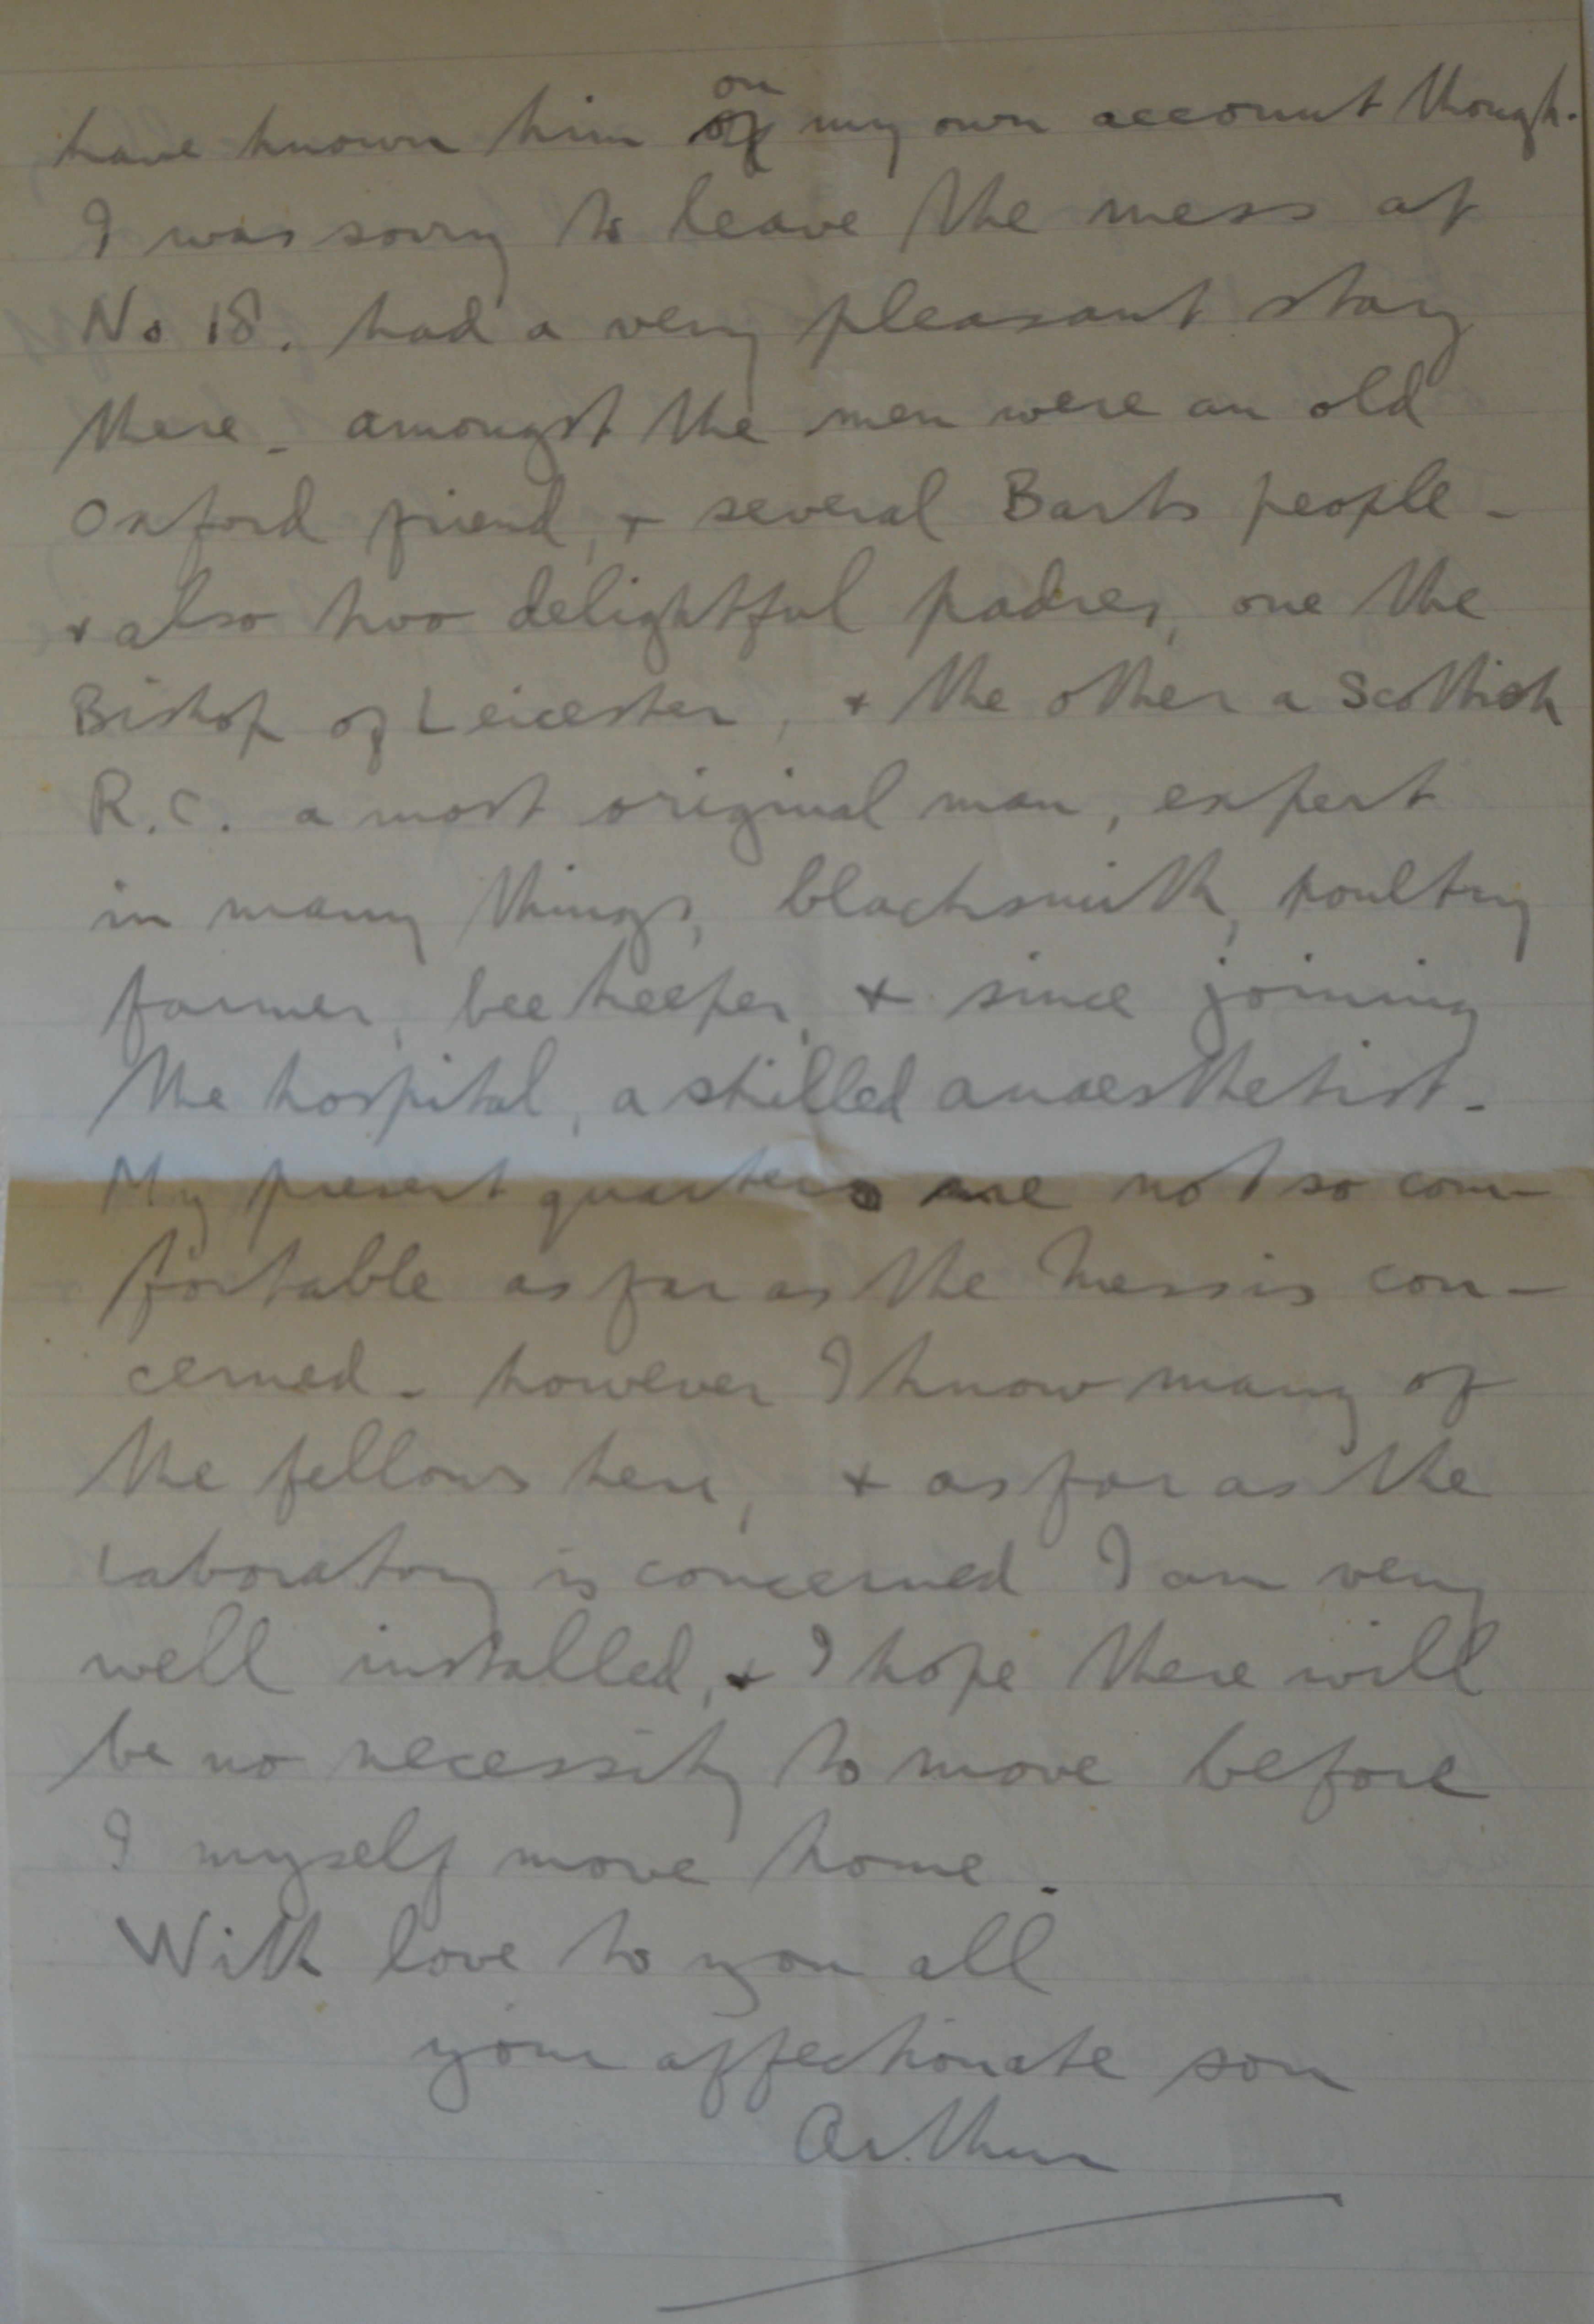 have known him of on my own account though.
I was sorry to leave the mess at
No 18. had a very pleasant stay
there - amongst the men were an old
Oxford friend, + several Barts people -
+ also two delightful padres, one the
Bishop of Leicester, + the other a Scottish
R.C. a most original man, expert
in many things, blacksmith, poultry
farmer, bee keeper, + since joining
the hospital, a skilled anaesthetist -
My present quarters are not so com-
fortable as far as the mess is con-
cerned - however I know many of
the fellows here, + as far as the
laboratory is concerned I am very
well installed, + I hope there will
be no necessity to move before
I myself move home.
With love to you all
your affectionate son
Arthur